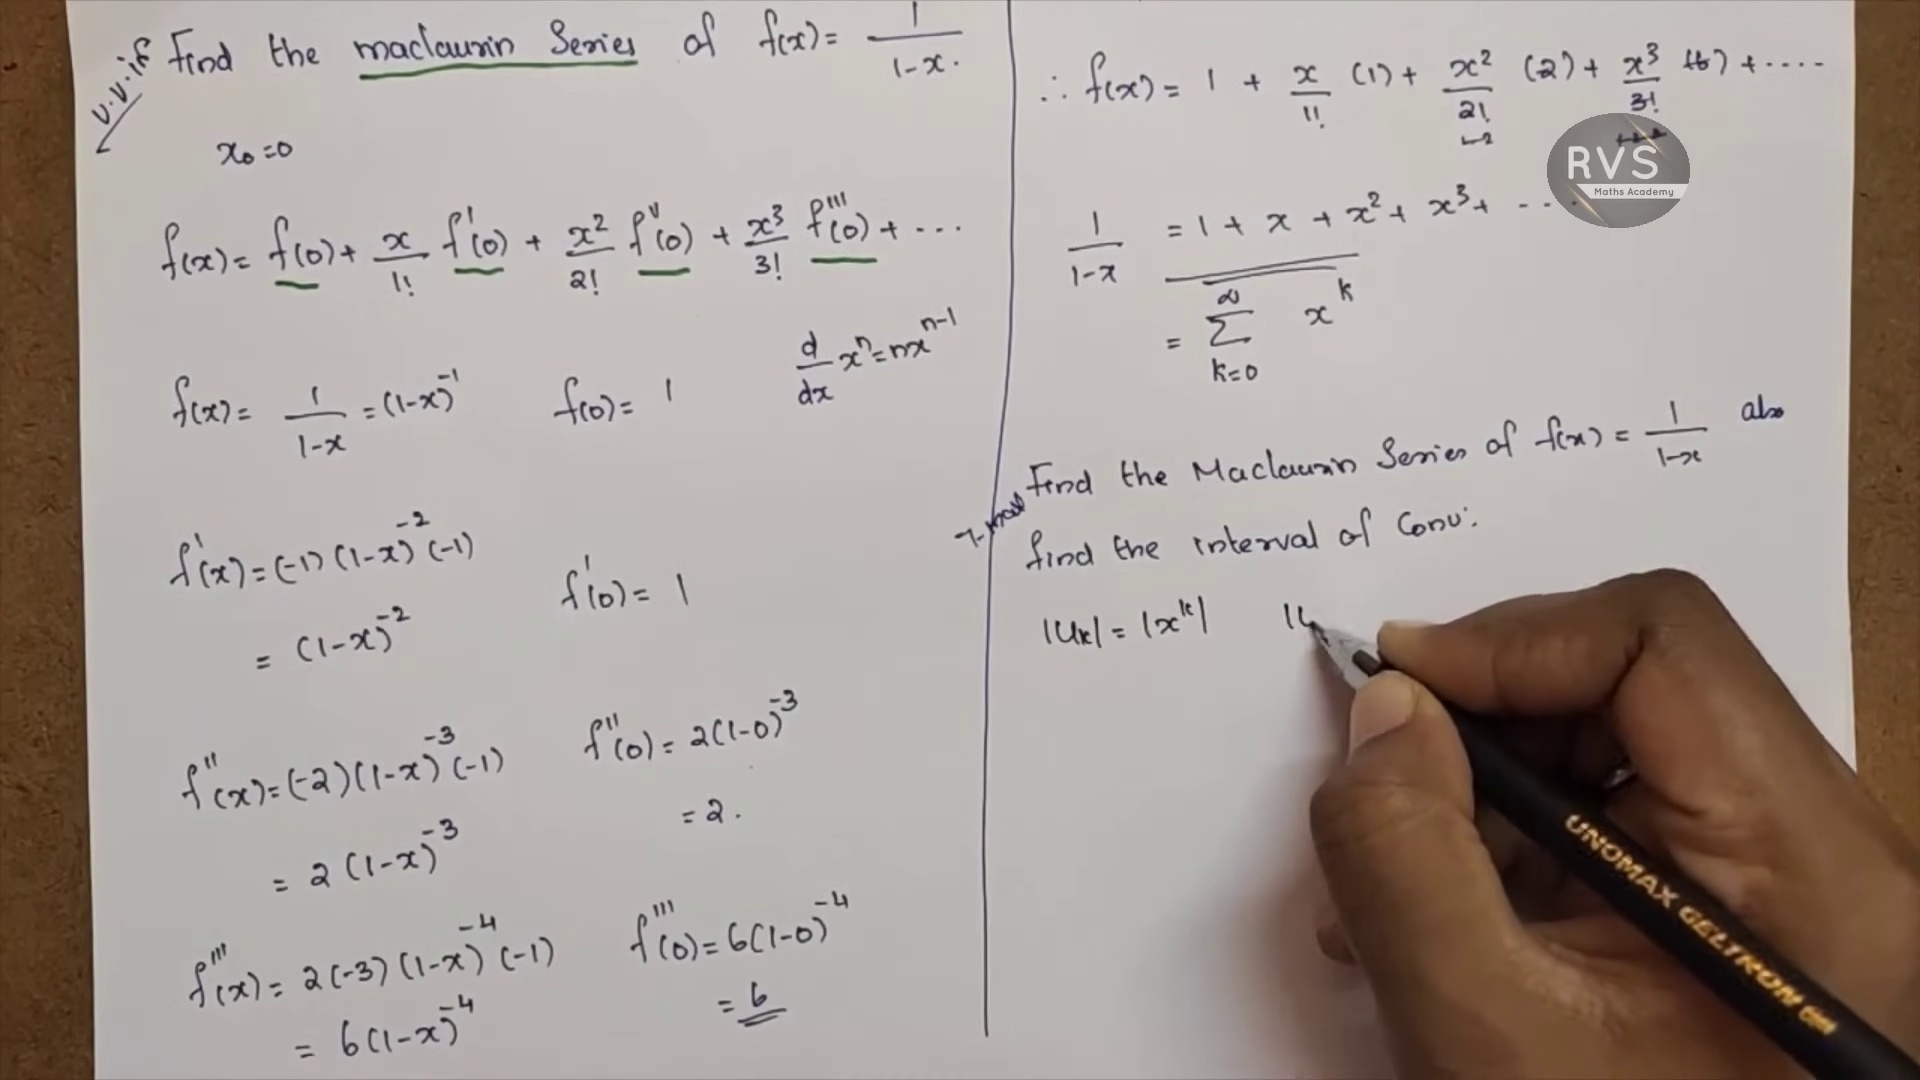 v.v.if Find the maclaurin Series of f(x) = 1/1-x.
x₀=0
f(x) = f(0) + x/1! f'(0) + x²/2! f''(0) + x³/3! f'''(0) + ...
f(x) = 1/1-x = (1-x)⁻¹ f(0) = 1 d/dx xⁿ = nxⁿ⁻¹
f'(x) = (-1)(1-x)⁻²(-1) f'(0) = 1
= (1-x)⁻²
f''(x) = (-2)(1-x)⁻³(-1) f''(0) = 2(1-0)⁻³
= 2(1-x)⁻³ = 2.
f'''(x) = 2(-3)(1-x)⁻⁴(-1) f'''(0) = 6(1-0)⁻⁴
= 6(1-x)⁻⁴ = 6
∴ f(x) = 1 + x/1! (1) + x²/2! (2) + x³/3! (6) + ....
RVS
Maths Academy
1/1-x = 1 + x + x² + x³ + ...
= ∑ k=0 ∞ xᵏ
Find the Maclaurin Series of f(x) = 1/1-x also
find the interval of Conv:
|Uₖ| = |xᵏ|
UNOMAX GELTRON